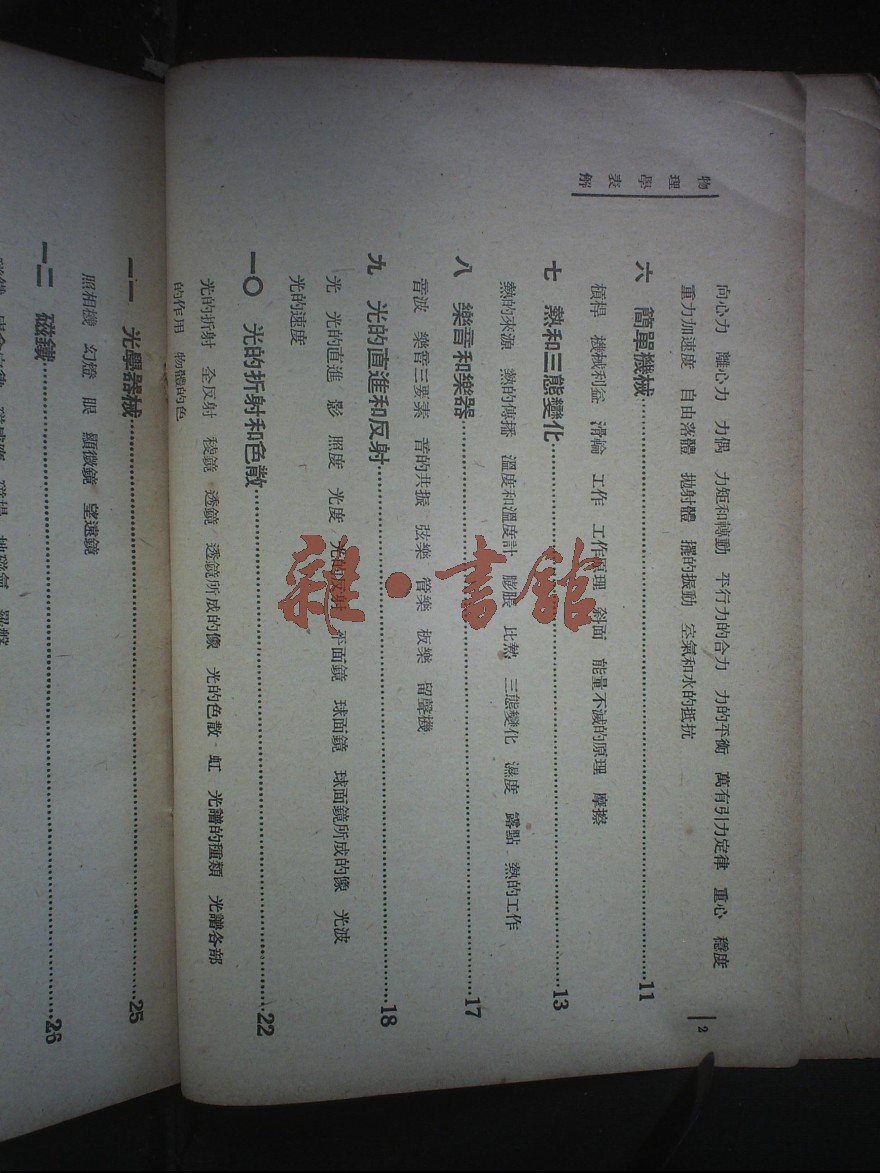 物理學表解
2
向心力 離心力 力偶 力矩和轉動 平行力的合力 力的平衡 萬有引力定律 重心 穩度
重力加速度 自由落體 拋射體 擺的振動 空氣和水的抵抗
六 簡單機械……11
槓桿 機械利益 滑輪 工作 工作原理 斜面 能量不滅的原理 摩擦
七 熱和三態變化……13
熱的來源 熱的傳播 溫度和溫度計 膨脹 比熱 三態變化 濕度 露點 熱的工作
八 樂音和樂器……17
音波 樂音三要素 音的共振 弦樂 管樂 板樂 留聲機
九 光的直進和反射……18
光 光的直進 影 照度 光度 光的反射 平面鏡 球面鏡 球面鏡所成的像 光波
光的速度
一〇 光的折射和色散……22
光的折射 全反射 稜鏡 透鏡 透鏡所成的像 光的色散 虹 光譜的種類 光譜各部
的作用 物體的色
一一 光學器械……25
照相機 幻燈 眼 顯微鏡 望遠鏡
一二 磁鐵……26
書館